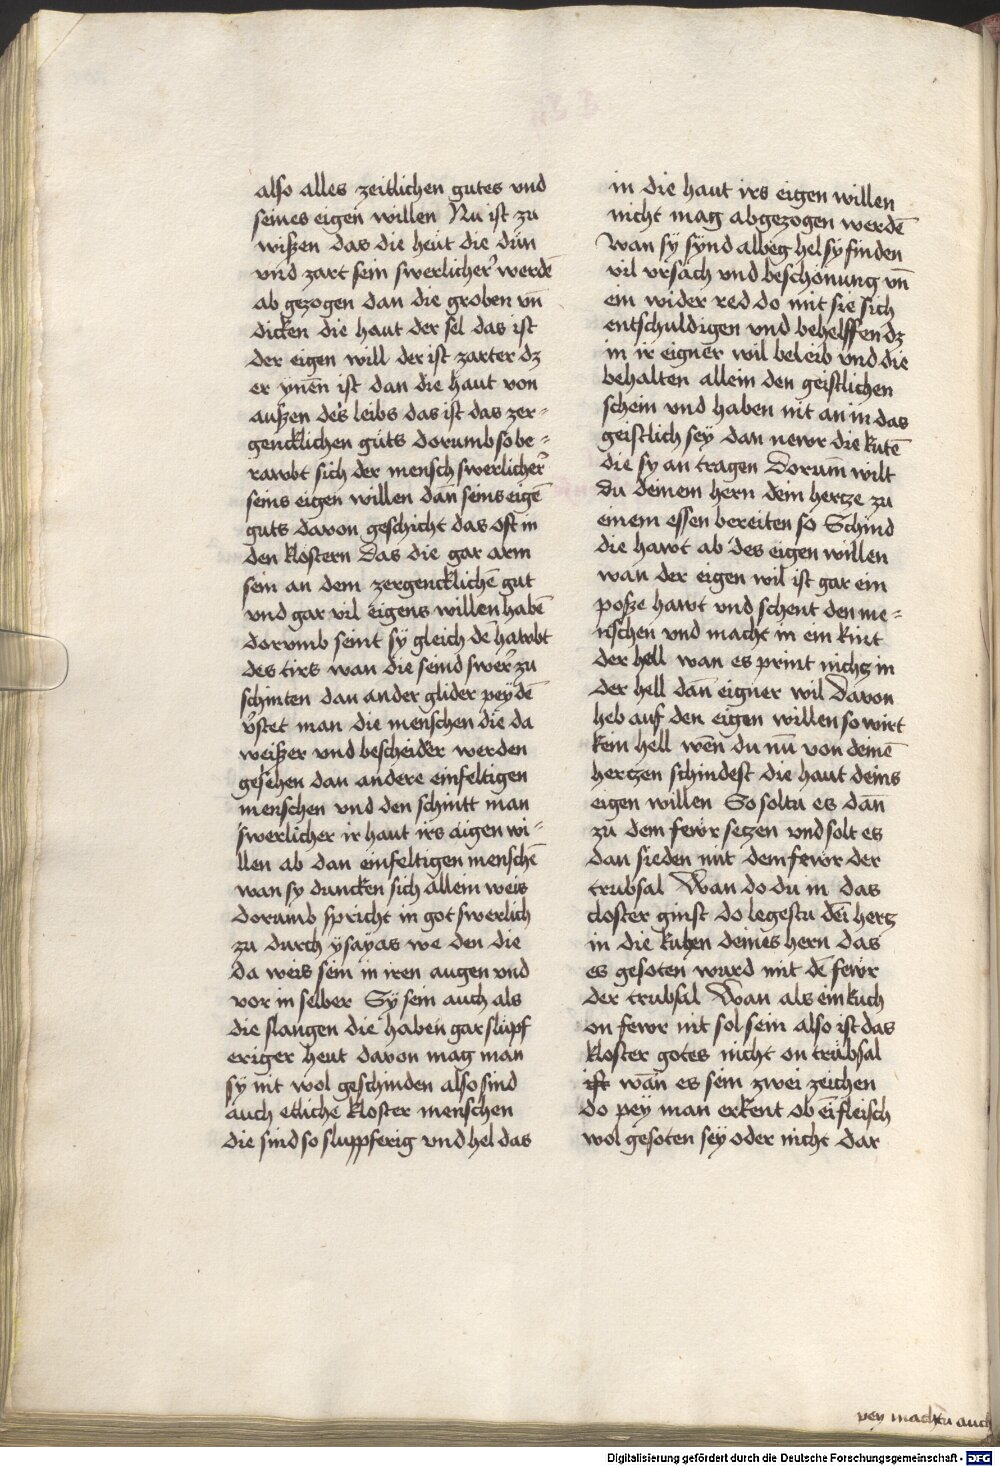 also alles zeitlichen gutes vnd
seines eigen willen Nu ist zu
wißen das die heut die dün
vnd zart sein swerlicher werdē
ab gezogen dan die groben vn̄
dicken die haut der sel das ist
der eigen will der ist zarter dz
er ynen̄ ist dan die haut von
außen des leibs das ist das zer-
gencklichen guts dorumb so be-
rawbt sich der mensch swerlicher
seins eigen willen dan̄ seins eigē
guts davon geschicht das oft in
den klostern Das die gar arm
sein an dem zergencklichē gut
vnd gar vil eigens willen habē
dorvmb seint sy gleich dē hawbt
des tirs wan die seind swer zu
schinten dan ander glider pey dē
v̓stet man die menschen die da
weißer vnd bescheider werden
gesehen dan andere einfeltigen
menschen vnd den schintt man
swerlicher ir haut irs aigen wi-
llen ab dan einfeltigen menschē
wan sy duncken sich allein weis
dorumb spricht in got swerlich
zu durch ysayas we den die
da weis sein in iren augen vnd
vor in selber Sy sein auch als
die slangen die haben gar slupf
eriger heut davon mag man
sy nit wol geschinden also sind
auch etliche kloster menschen
die sind so sluppferig vnd hel das
in die haut irs eigen willen
nicht mag abgezogen werdē
Wan sÿ sÿnd albeg hel sy finden
vil vrsach vnd beschonung vn̄
ein wider red do mit sie sich
entschuldigen vnd behelffen dz
in ir eigner wil beleib vnd die
behalten allein den geistlichen
schein vnd haben nit an in das
geistlich sey dan newr die kutē
die sy an tragen Dorum̄ wilt
du deinem hern dein hertze zu
einem essen bereiten so Schind
die hawt ab des eigen willen
wan der eigen wil ist gar ein
poße hawt vnd schent den me-
nschen vnd macht in ein kint
der hell wan es print nichtz in
der hell dan̄ eigner wil Davon
heb auf den eigen willen so wirt
kein hell wen̄ du nu̅ von deinē
hertzen schindest die haut deins
eigen willen So soltu es dan̄
zu dem fewr setzen vnd solt es
dan sieden mit dem fewr der
trubsal Wan do du in das
closter ginst do legestu dei̅ hertz
in die kuchen deines hern das
es gesoten wurd mit dē fewr
der trubsal Wan als ein kuch
on fewr nit sol sein also ist das
kloster gotes nicht on trubsal
ist wan̄ es sein zwei zeichen
do pey man erkent ob ei̅ fleisch
wol gesoten sey oder nicht dar
pey machtu auch
Digitalisierung gefördert durch die Deutsche Forschungsgemeinschaft - DFG